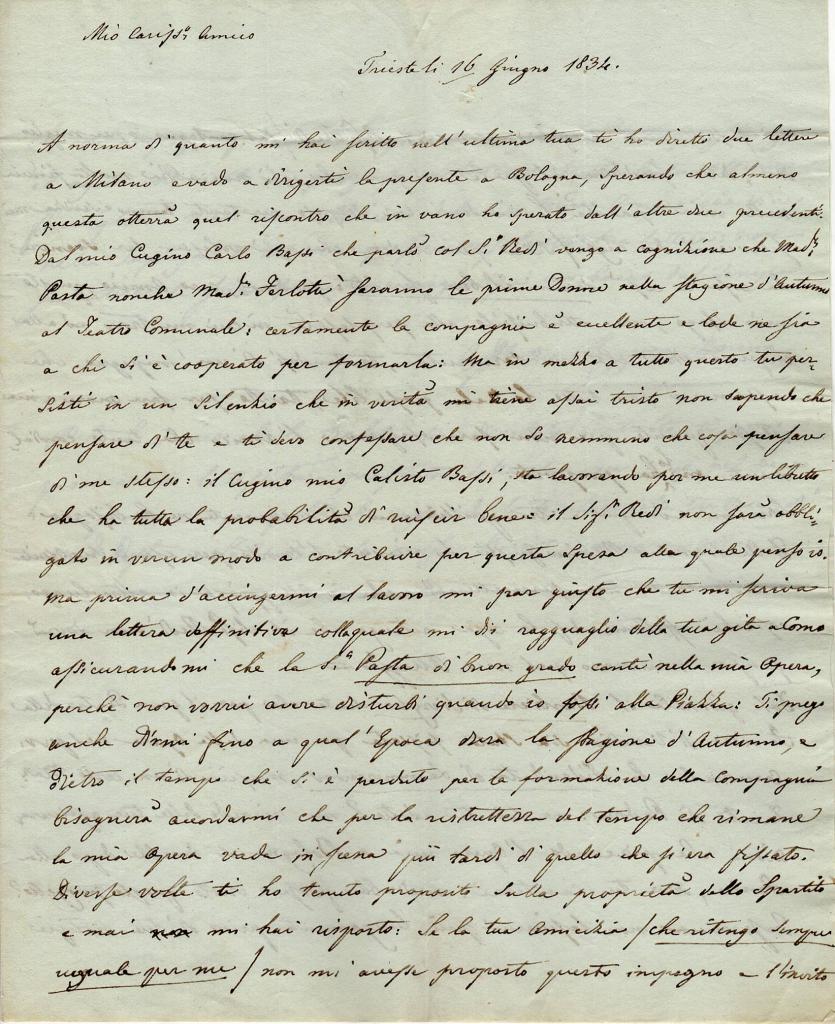 Mio Cariss.º Amico
Trieste li 16 Giugno 1834.
A norma di quanto mi hai scritto nell'ultima tua ti ho diretto due lettere
a Milano e vado a dirigerti la presente a Bologna, sperando che almeno
questa otterrà quel riscontro che in vano ho sperato dall'altre due precedenti.
Dal mio Cugino Carlo Bassi che parlò col Sig.r Redi vengo a cognizione che Mad.
Pasta nonche Mad. Ferlotti saranno le prime Donne nella stagione d'Autunno
al Teatro Comunale: certamente la compagnia è eccellente e lode ne sia
a chi si è cooperato per formarla: Ma in mezzo a tutto questo tu per-
sisti in un silenzio che in verità mi tiene assai tristo non sapendo che
pensare di te e ti devo confessare che non so nemmeno che cosa pensare
di me stesso: il Cugino mio Calisto Bassi, sta lavorando per me un libretto
che ha tutta la probabilità di riuscir bene: il Sig.r Redi non sarà obbli-
gato in verun modo a contribuire per questa spesa alla quale penso io.
ma prima d'accingermi al lavoro mi par giusto che tu mi scriva
una lettera deffinitiva collaquale mi dii ragguaglio della tua gita a Como
assicurandomi che la Sig.a Pasta di buon grado canti nella mia opera,
perchè non vorrei avere disturbi quando io fossi alla Piazza: Ti prego
anche dirmi fino a qual'Epoca dura la stagione d'Autunno, e
dietro il tempo che si è perduto per la formazione della Compagnia
bisognerà accordarmi che per la ristrettezza del tempo che rimane
la mia opera vada in scena più tardi di quello che si era fissato.
Diverse volte ti ho tenuto propositi sulla proprietà dello Spartito
e mai mi hai risposto: Se la tua amicizia /che ritengo sempre
uguale per me/ non mi avesse proposto questo impegno e l'invito